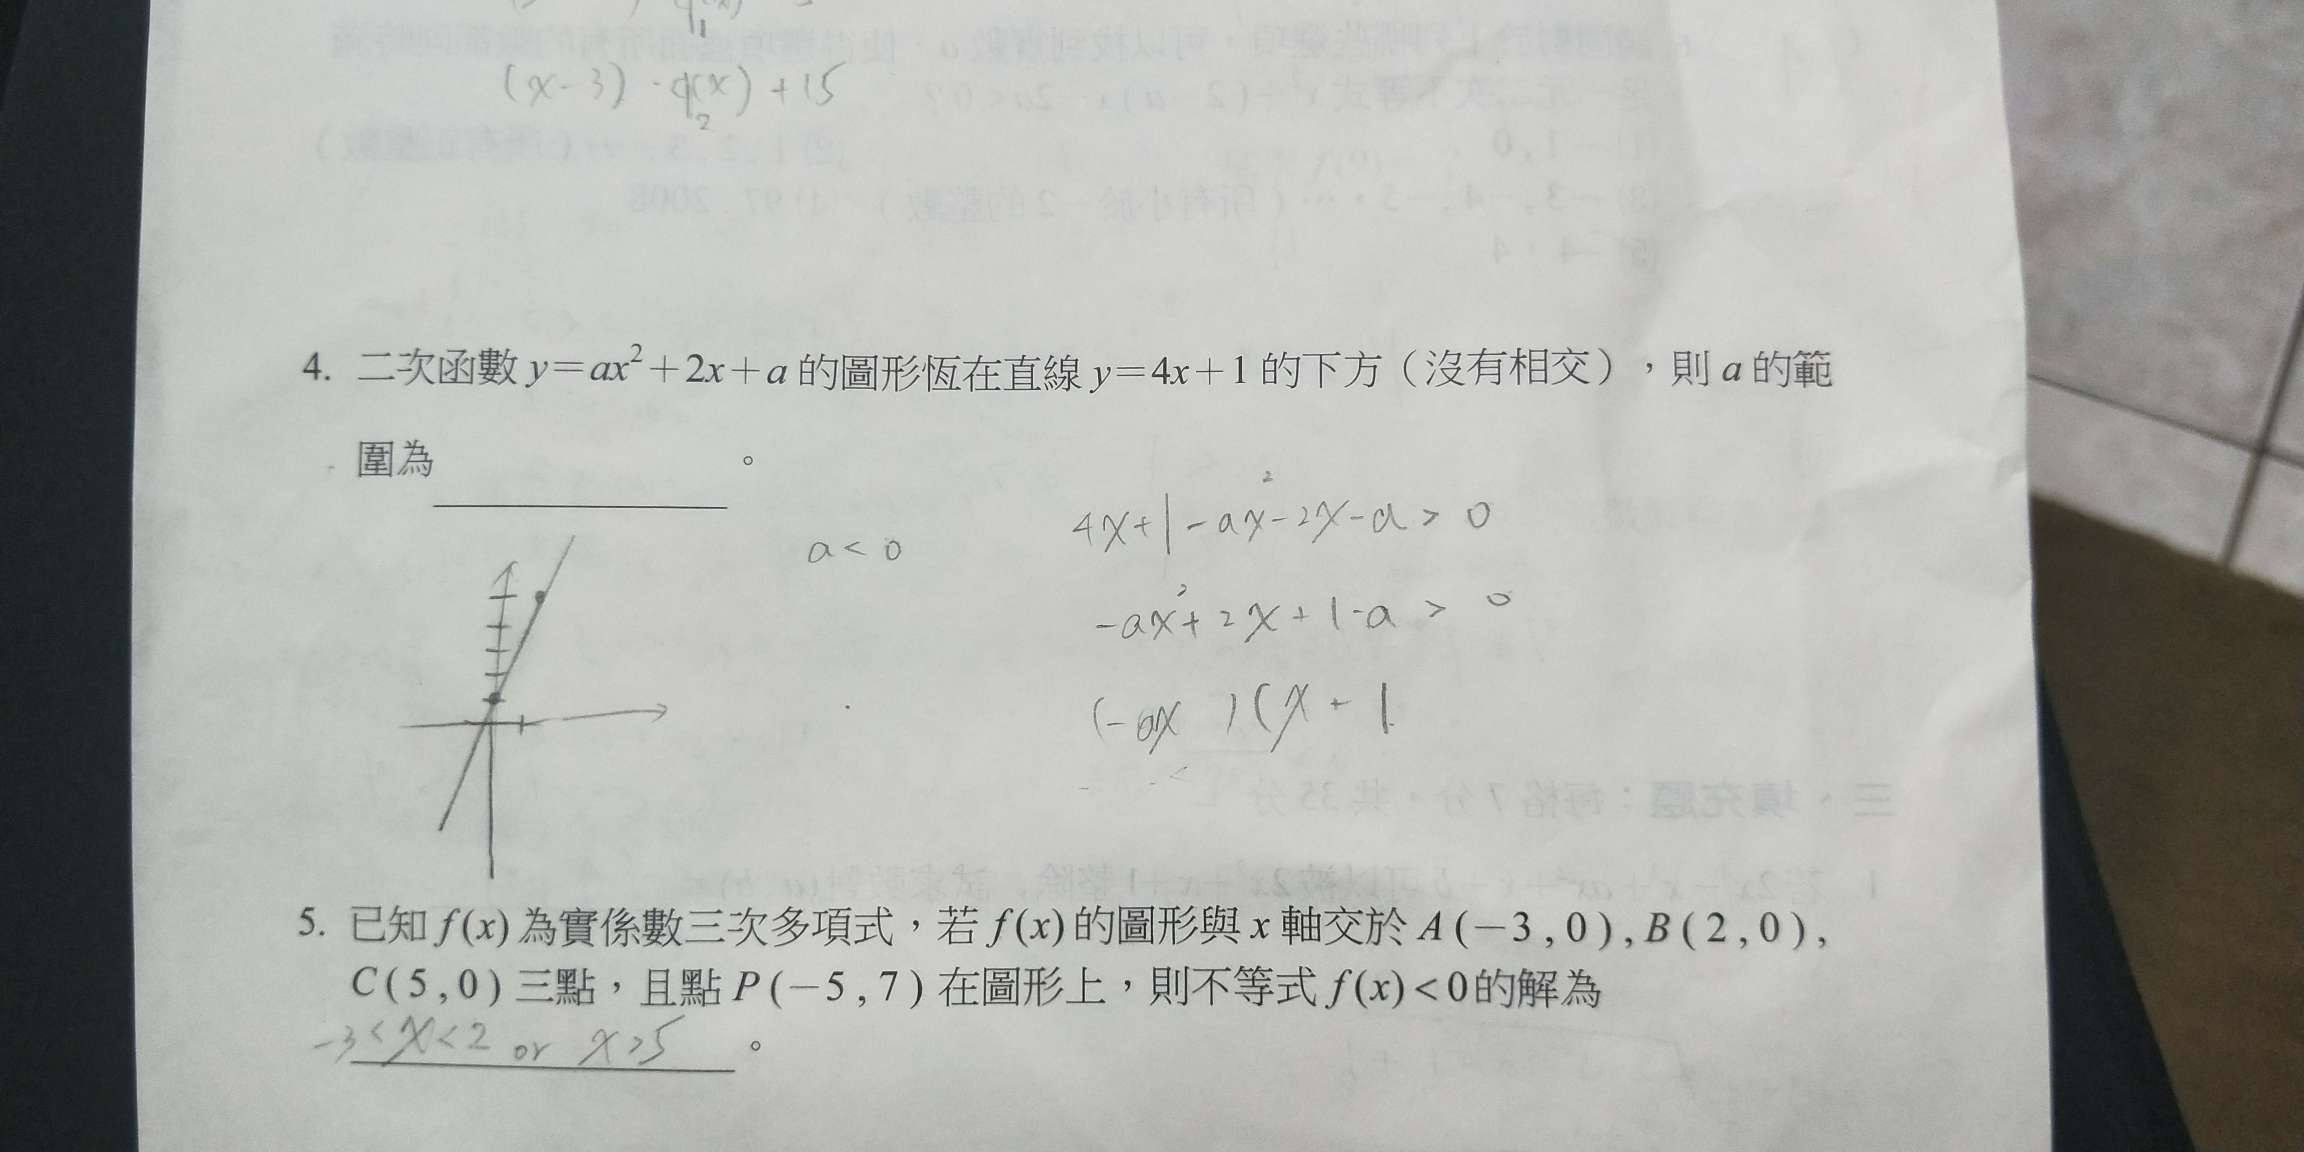 (x-3)·q₂(x)+15
4. 二次函數 y=ax²+2x+a 的圖形恆在直線 y=4x+1 的下方（沒有相交），則 a 的範
圍為＿＿＿＿＿＿。
a<0
4x+1-ax²-2x-a>0
-ax²+2x+1-a>0
(-ax )(x+1
5. 已知 f(x) 為實係數三次多項式，若 f(x) 的圖形與 x 軸交於 A(−3,0),B(2,0),
C(5,0) 三點，且點 P(−5,7) 在圖形上，則不等式 f(x)<0 的解為
-3<x<2 or x>5。